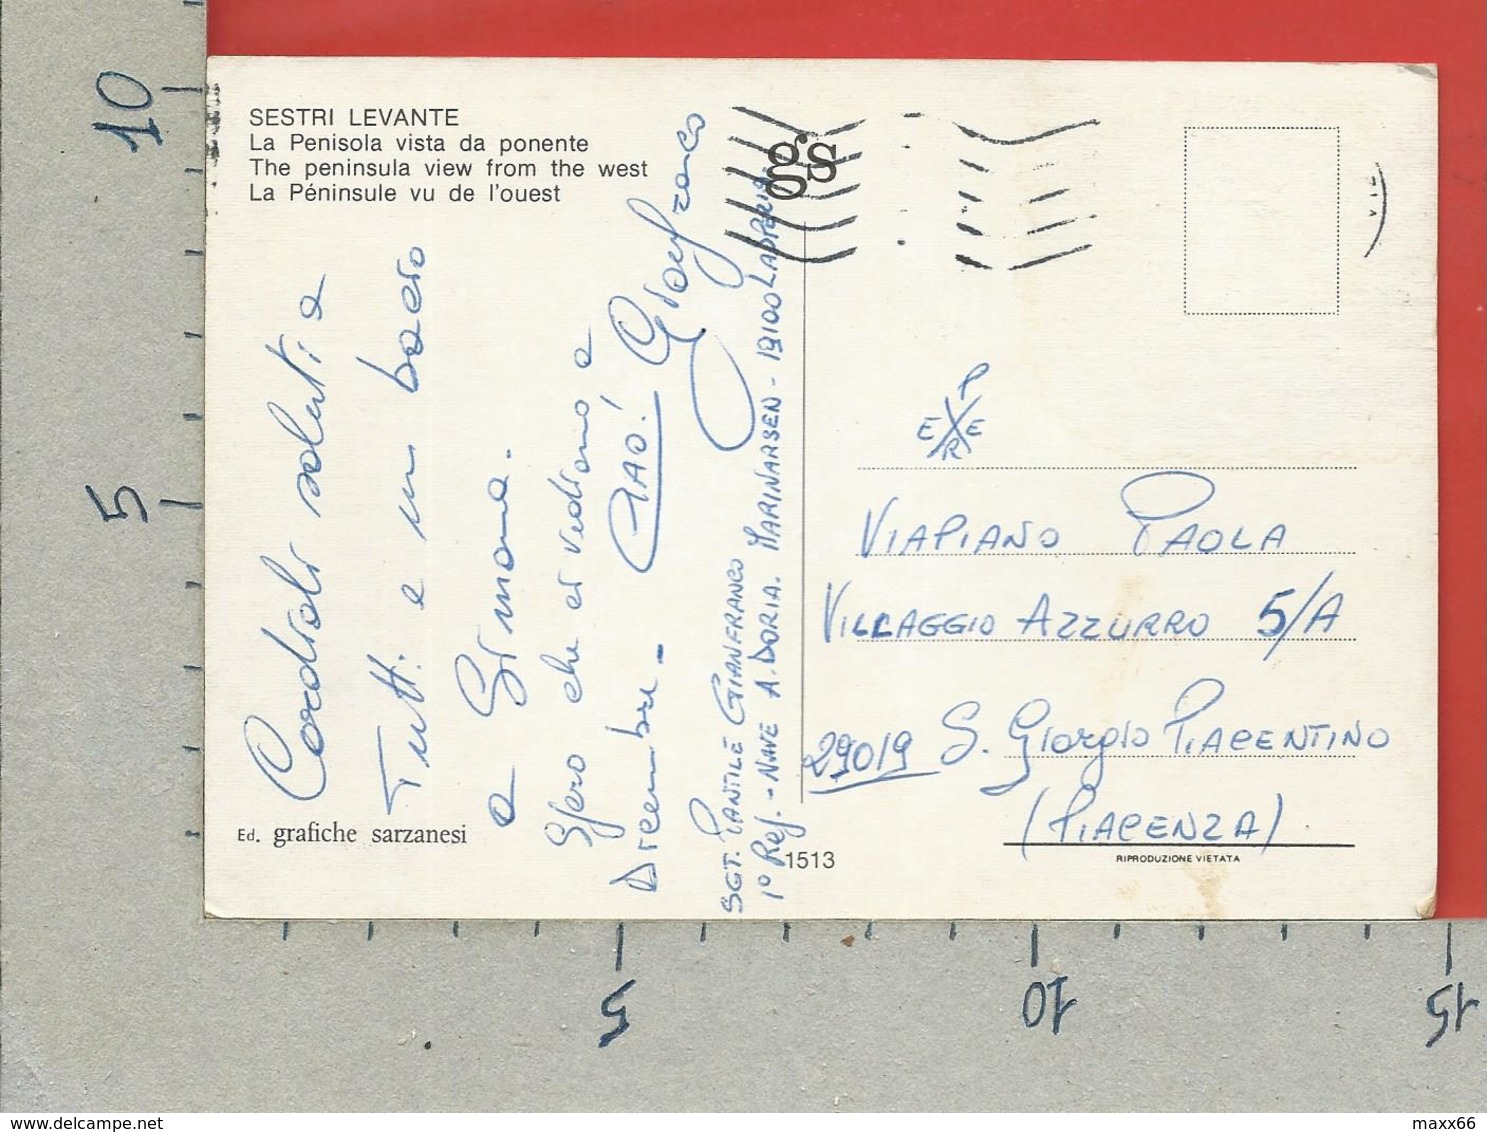 SESTRI LEVANTE
La Penisola vista da ponente
The peninsula view from the west
La Péninsule vu de l'ouest
gs
Cordiali saluti a
Tutti e un bacio
a Simona.
Spero che ci vediamo a
Dicembre. - CIAO! Gianfranco
SGT. PANTILE GIANFRANCO
1° Rep. - NAVE A. DORIA. MARINARSEN - 19100 LASPEZIA.
PER
E
VIAPIANO PAOLA
VILLAGGIO AZZURRO 5/A
29019 S. Giorgio PIACENTINO
(PIACENZA)
Ed. grafiche sarzanesi
1513
RIPRODUZIONE VIETATA
10
5
5
10
15
delcampe.net
maxx66